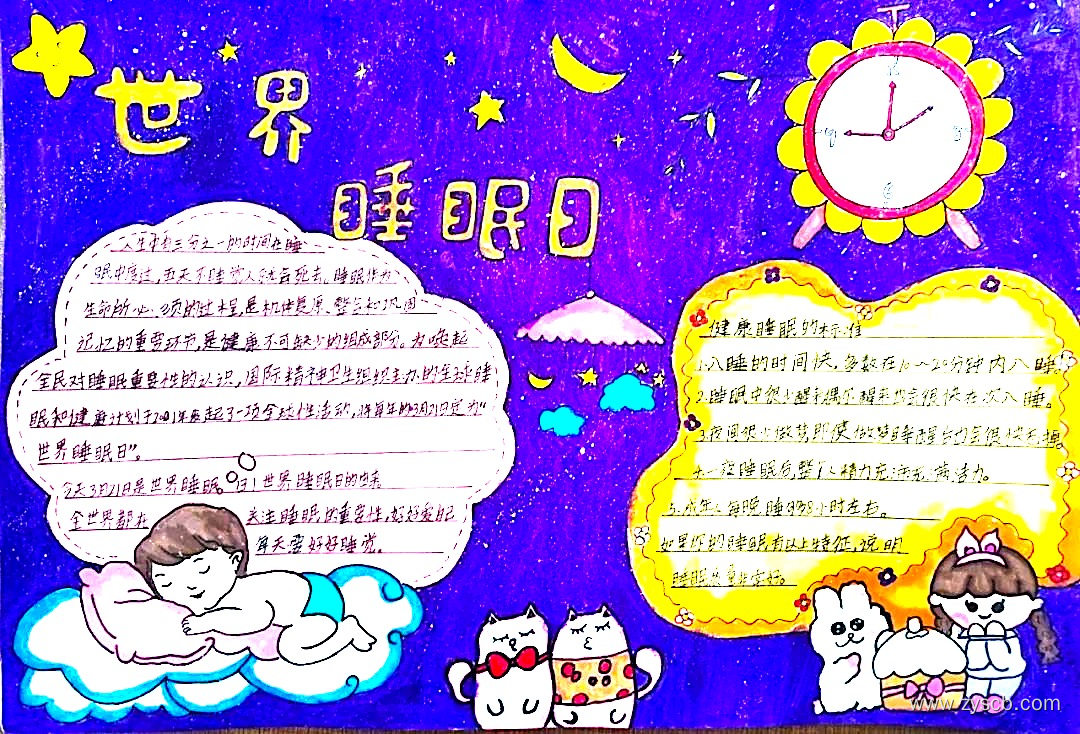 世界
睡眠日
人生中有三分之一的时间在睡
眠中度过,五天不睡觉人就会死去。睡眠作为
生命所必须的过程,是机体复原、整合和巩固
记忆的重要环节,是健康不可缺少的组成部分。为唤起
全民对睡眠重要性的认识,国际精神卫生组织主办的全球睡
眠和健康计划于2001年发起了一项全球性活动,将每年的3月21日定为“
世界睡眠日”。
今天3月21日是世界睡眠日!世界睡眠日的
全世界都在 关注睡眠的重要性,好好爱自己
每天要好好睡觉。
健康睡眠的标准
1.入睡的时间快,多数在10~20分钟内入睡。
2.睡眠中很少醒来,偶尔醒来也会很快在次入睡。
3.夜间很少做梦,即使做梦睡醒也会很快忘掉。
4.一夜睡眠后,整个人精力充沛充满活力。
5.成年人每晚睡好8小时左右。
如果你的睡眠有以上特征,说明
睡眠质量非常好。
12
9
3
6
www.zyscb.com